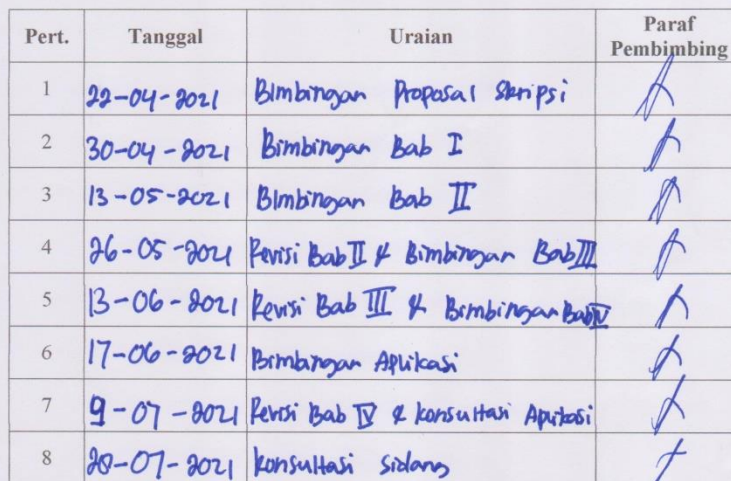 Pert. Tanggal Uraian Paraf Pembimbing
1 22-04-2021 Bimbingan Proposal Skripsi
2 30-04-2021 Bimbingan Bab I
3 13-05-2021 Bimbingan Bab II
4 26-05-2021 Revisi Bab II & Bimbingan Bab III
5 13-06-2021 Revisi Bab III & Bimbingan Bab IV
6 17-06-2021 Bimbingan Aplikasi
7 9-07-2021 Revisi Bab IV & Konsultasi Aplikasi
8 28-07-2021 Konsultasi Sidang